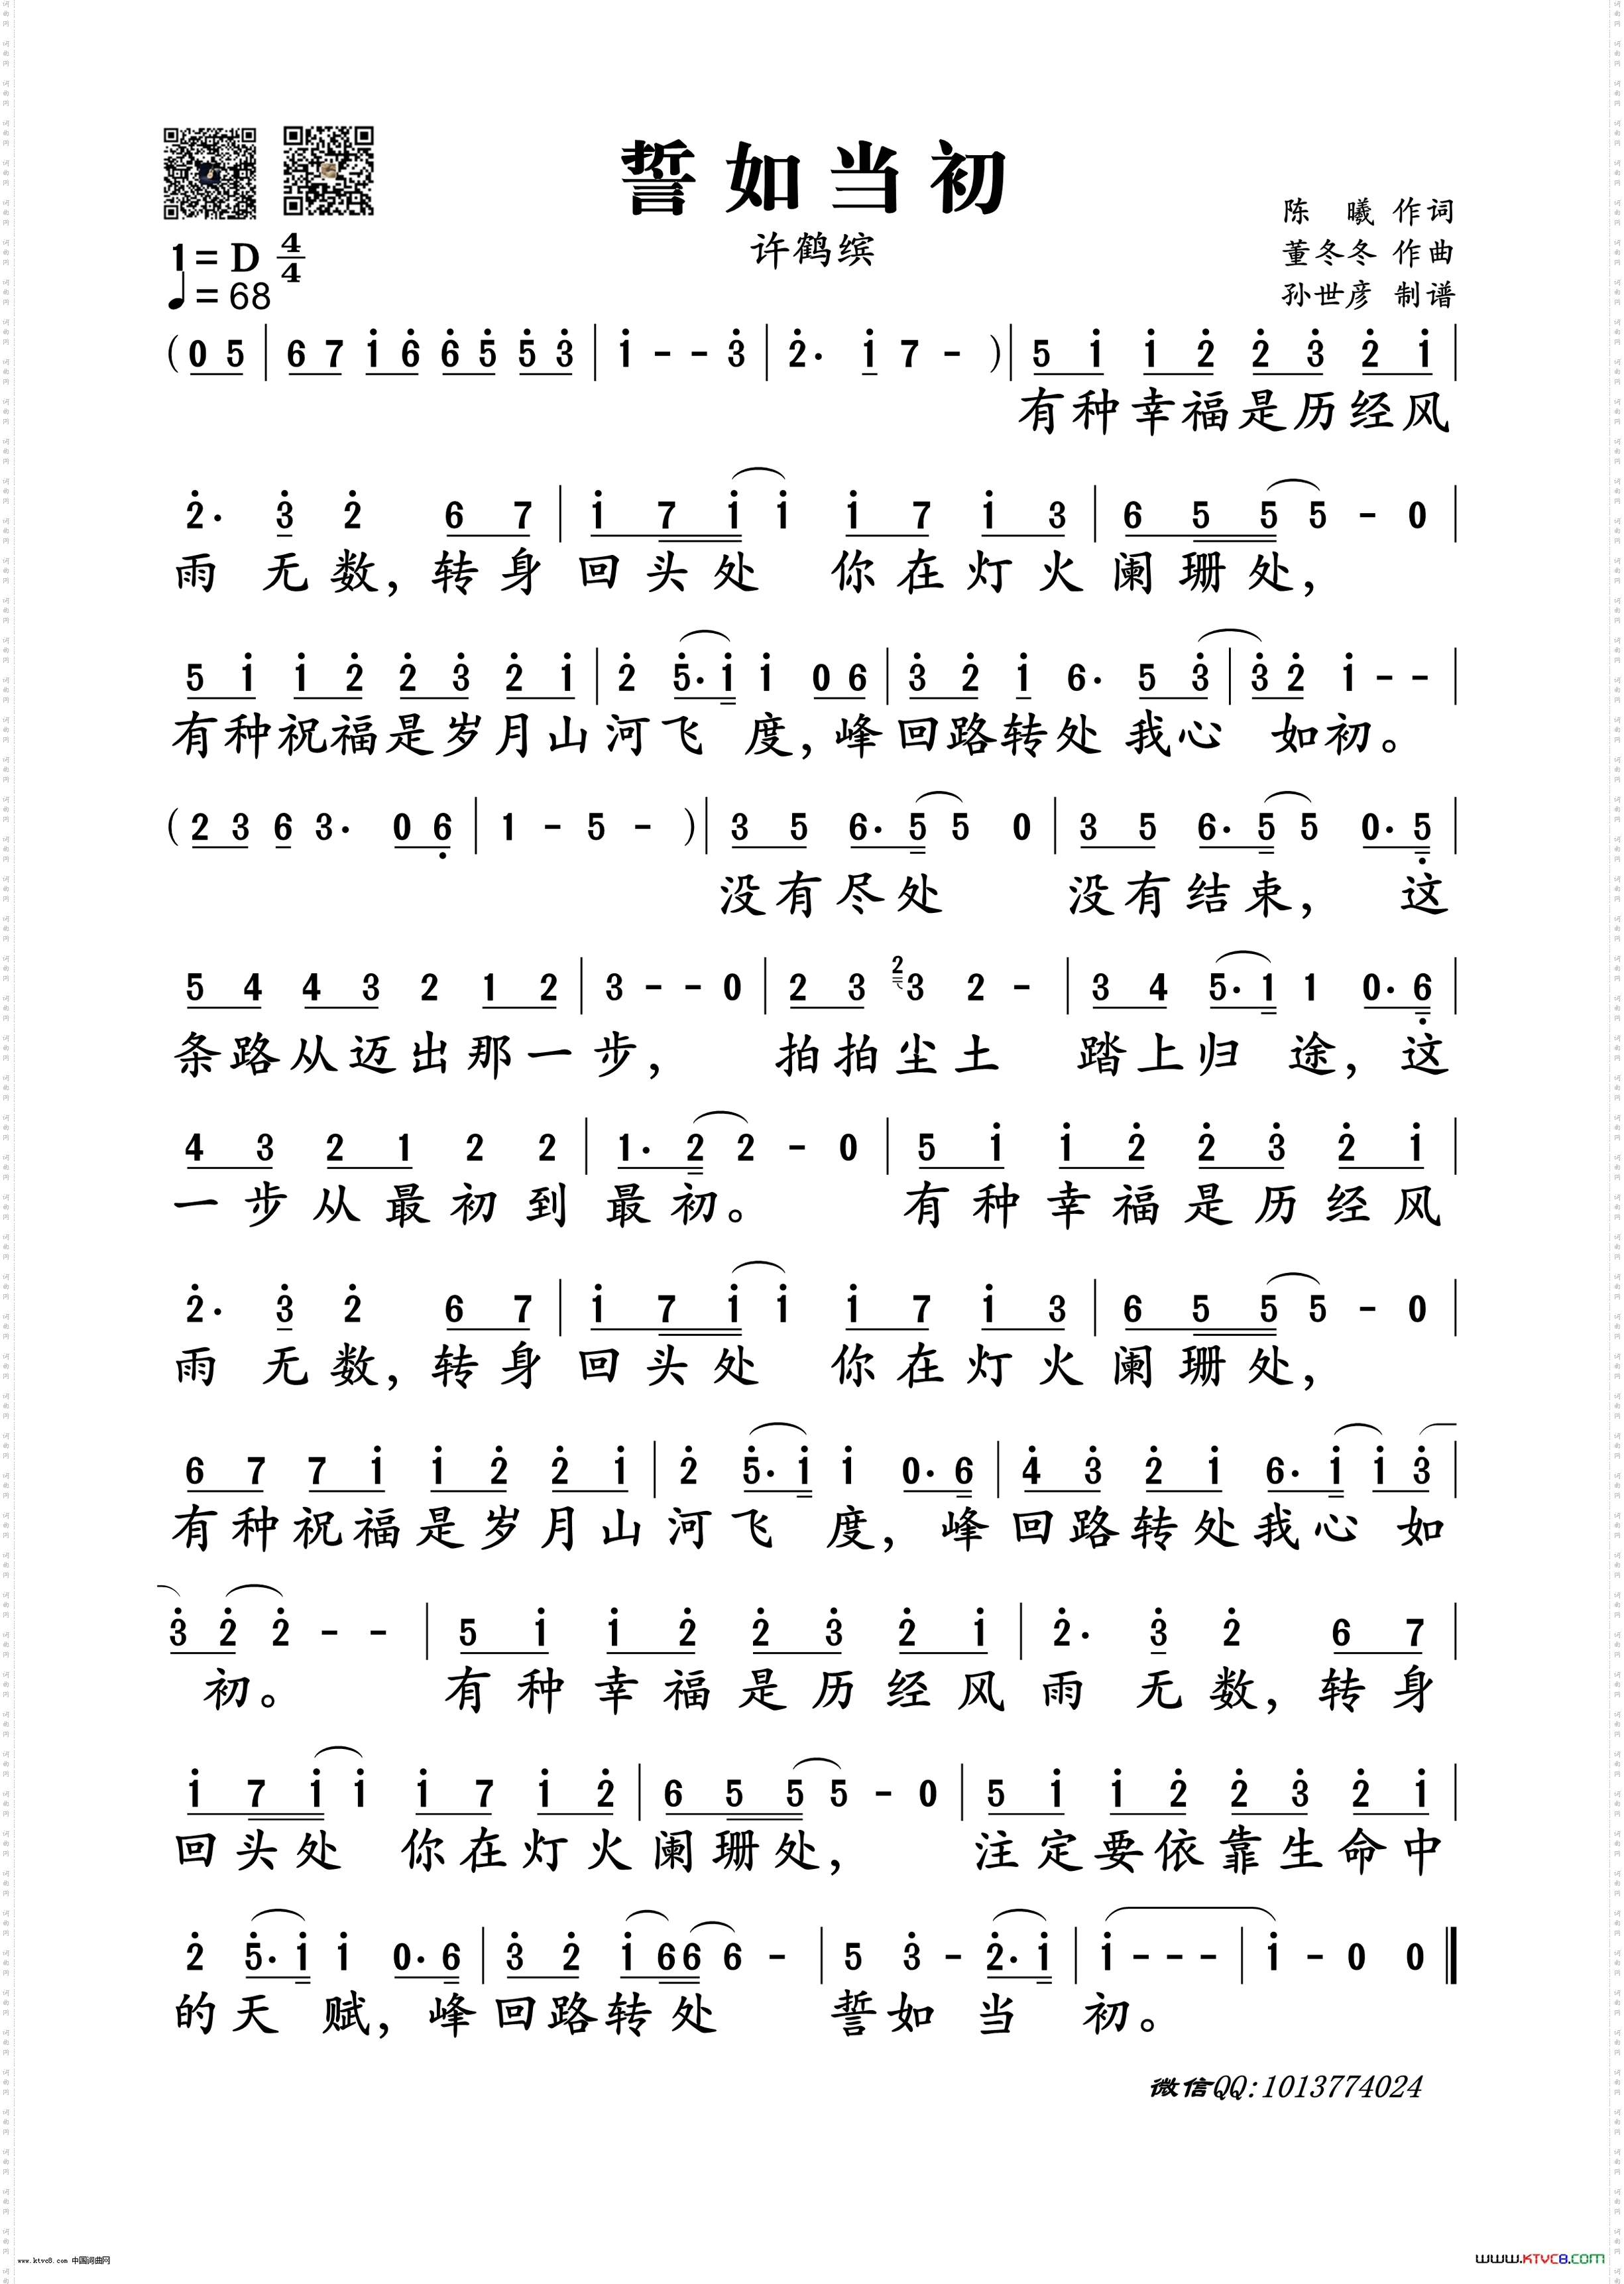 誓如当初
许鹤缤
陈 曦 作词
董冬冬 作曲
孙世彦 制谱
1=D 4/4
♩=68
(0 5 | 6 7 1̇ 6̇ 6̇ 5̇ 5̇ 3̇ | 1̇ - - 3̇ | 2̇. 1̇ 7 - )| 5 1̇ 1̇ 2̇ 2̇ 3̇ 2̇ 1̇ |
有种幸福是历经风
2̇. 3̇ 2̇ 6 7 | 1̇ 7 1̇ 1̇ 1̇ 7 1̇ 3 | 6 5 5 5 - 0 |
雨 无数,转身回头处 你在灯火阑珊处,
5 1̇ 1̇ 2̇ 2̇ 3̇ 2̇ 1̇ | 2̇ 5̇. 1̇ 1̇ 0 6 | 3̇ 2̇ 1̇ 6. 5 3̇ | 3̇ 2̇ 1̇ - - |
有种祝福是岁月山河飞 度,峰回路转处 我心 如初。
(2 3 6 3. 0 6̣ | 1 - 5 - )| 3 5 6. 5 5 0 | 3 5 6. 5 5 0. 5̣ |
没有尽处 没有结束, 这
5 4 4 3 2 1 2 | 3 - - 0 | 2 3 2 3 2 - | 3 4 5. 1 1 0. 6̣ |
条路从迈出那一步, 拍拍尘土 踏上归 途,这
4 3 2 1 2 2 | 1. 2 2 - 0 | 5 1̇ 1̇ 2̇ 2̇ 3̇ 2̇ 1̇ |
一步从最初到最初。 有种幸福是历经风
2̇. 3̇ 2̇ 6 7 | 1̇ 7 1̇ 1̇ 1̇ 7 1̇ 3 | 6 5 5 5 - 0 |
雨 无数,转身回头处 你在灯火阑珊处,
6 7 7 1̇ 1̇ 2̇ 2̇ 1̇ | 2̇ 5̇. 1̇ 1̇ 0. 6̇ | 4̇ 3̇ 2̇ 1̇ 6. 1̇ 1̇ 3̇ |
有种祝福是岁月山河飞 度,峰回路转处我心 如
3̇ 2̇ 2̇ - - | 5 1̇ 1̇ 2̇ 2̇ 3̇ 2̇ 1̇ | 2̇. 3̇ 2̇ 6 7 |
初。 有种幸福是历经风雨 无数,转身
1̇ 7 1̇ 1̇ 1̇ 7 1̇ 2̇ | 6 5 5 5 - 0 | 5 1̇ 1̇ 2̇ 2̇ 3̇ 2̇ 1̇ |
回头处 你在灯火阑珊处, 注定要依靠生命中
2̇ 5̇. 1̇ 1̇ 0. 6̇ | 3̇ 2̇ 1̇ 6 6 6 - | 5 3̇ - 2̇. 1̇ | 1̇ - - - | 1̇ - 0 0 ‖
的天 赋,峰回路转处 誓如 当 初。
微信QQ:1013774024
www.ktvc8.com 中国词曲网
www.KTVC8.com